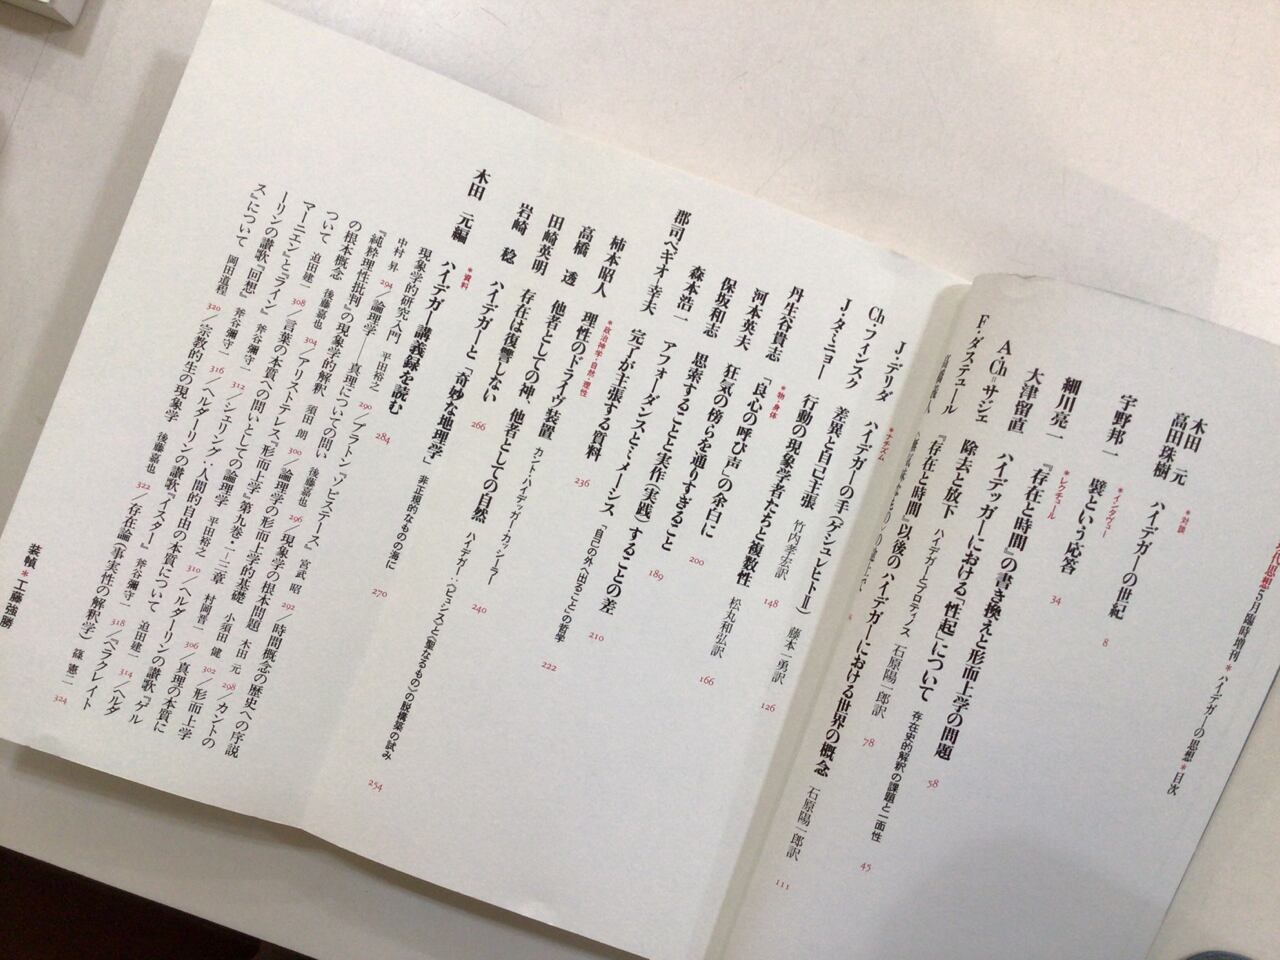 現代思想5月臨時増刊＊ハイデガーの思想＊目次
＊対談
木田 元
高田珠樹 ハイデガーの世紀 8
＊インタヴュー
宇野邦一 襞という応答 34
＊レクチュール
細川亮一 『存在と時間』の書き換えと形而上学の問題 58
大津留直 ハイデッガーにおける「性起」について 存在史的解釈の課題と一面性 45
A・Ch＝サジェ 除去と放下 ハイデガーとプロティノス 石原陽一郎訳 78
F・ダステュール 『存在と時間』以後のハイデガーにおける世界の概念 石原陽一郎訳 111
＊ナチズム
J・デリダ ハイデガーの手（ゲシュレヒトⅡ） 藤本一勇訳 126
Ch・フィンスク 差異と自己主張 竹内孝宏訳 148
J・タミニョー 行動の現象学者たちと複数性 松丸和弘訳 166
＊物・身体
丹生谷貴志 「良心の呼び声」の余白に 200
河本英夫 狂気の傍らを通りすぎること
保坂和志 思索することと実作（実践）することの差 210
森本浩二 アフォーダンスとミメーシス 189
郡司ペギオ-幸夫 完了が主張する質料 「自己の外へ出ること」の哲学 222
＊政治神学・自然・理性
柿本昭人 理性のドライヴ装置 カント・ハイデッガー・カッシーラー 240
高橋 透 他者としての神、他者としての自然 ハイデガー：〈ピュシス〉と〈聖なるもの〉の脱構築の試み 254
田崎英明 存在は復讐しない 266
岩崎 稔 ハイデガーと「奇妙な地理学」 非正規的なものの海に 270
＊資料
木田 元編 ハイデガー 講義録を読む 284
現象学的研究入門 平田裕之 290／プラトン・『ソピステース』 宮武 昭 292／時間概念の歴史への序説
中村 昇 294／論理学――真理についての問い 後藤嘉也 296／現象学の根本問題 木田 元 298／カントの
『純粋理性批判』の現象学的解釈 須田 朗 300／論理学の形而上学的基礎 小須田 健 302／形而上学
の根本概念 後藤嘉也 304／アリストテレス『形而上学』第九巻一-三章 村岡晋一 306／真理の本質に
ついて 迫田建一 308／言葉の本質への問いとしての論理学 平田裕之 310／ヘルダーリンの讃歌『ゲル
マーニエン』と『ライン』 斧谷彌守一 312／シェリング：人間的自由の本質について 迫田建一 314／ヘルダ
ーリンの讃歌『回想』 斧谷彌守一 316／ヘルダーリンの讃歌『イスター』 斧谷彌守一 318／『ヘラクレイト
ス』について 岡田道程 320／宗教的生の現象学 後藤嘉也 322／存在論（事実性の解釈学） 篠 憲二 324
装幀＊工藤強勝